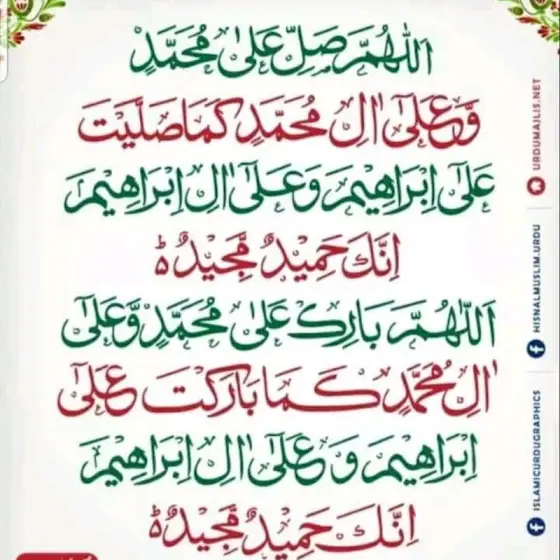 اَللّٰهُمَّ صَلِّ عَلٰى مُحَمَّدٍ
وَّعَلٰٓى اٰلِ مُحَمَّدٍ كَمَا صَلَّيْتَ
عَلٰٓى اِبْرَاهِيْمَ وَعَلٰٓى اٰلِ اِبْرَاهِيْمَ
اِنَّكَ حَمِيْدٌ مَّجِيْدٌ ؕ
اَللّٰهُمَّ بَارِكْ عَلٰى مُحَمَّدٍ وَّعَلٰٓى
اٰلِ مُحَمَّدٍ كَمَا بَارَكْتَ عَلٰٓى
اِبْرَاهِيْمَ وَعَلٰٓى اٰلِ اِبْرَاهِيْمَ
اِنَّكَ حَمِيْدٌ مَّجِيْدٌ ؕ
URDUMAJLIS.NET
HISNALMUSLIM.URDU
ISLAMICURDUGRAPHICS